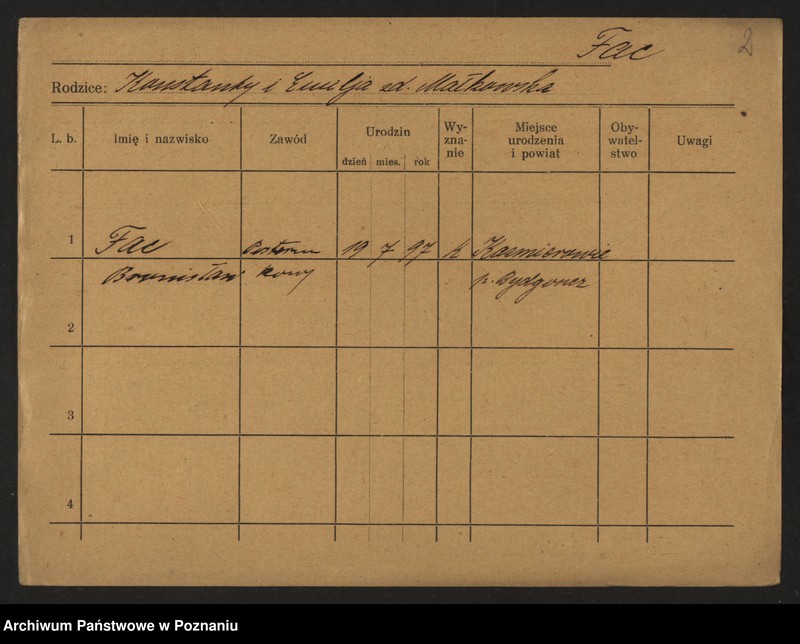 Fac 2
Rodzice: Konstanty i Emilja zd. Małkowska
L. b. Imię i nazwisko Zawód Urodzin dzień mies. rok Wy-zna-nie Miejsce urodzenia i powiat Oby-watel-stwo Uwagi
1 Fac Posterun 19 7 97 k Kazmierowie
Bronisław kowy p. Bydgoszcz
2
3
4
Archiwum Państwowe w Poznaniu